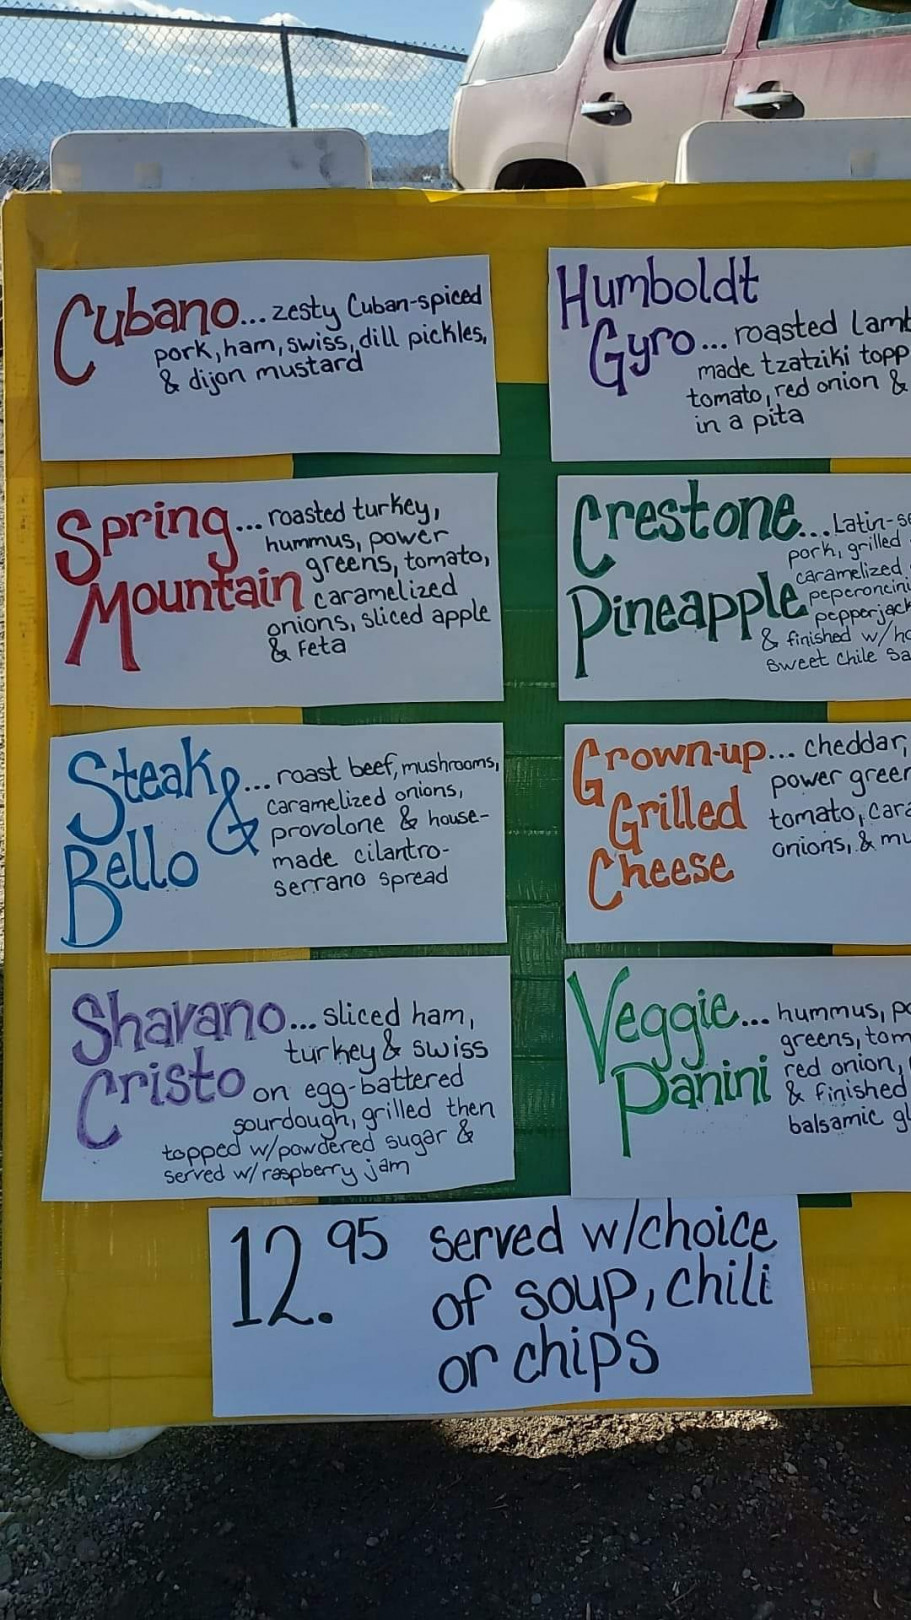 Cubano... zesty Cuban-spiced
pork, ham, swiss, dill pickles,
& dijon mustard
Spring... roasted turkey,
hummus, power
greens, tomato,
Mountain caramelized
onions, sliced apple
& Feta
Steak &... roast beef, mushrooms,
caramelized onions,
provolone & house-
Bello made cilantro-
serrano spread
Shavano... sliced ham,
turkey & swiss
Cristo on egg-battered
sourdough, grilled then
topped w/powdered sugar &
served w/raspberry jam
Humboldt
Gyro... roasted lamb
made tzatziki topp
tomato, red onion &
in a pita
Crestone... Latin-s
pork, grilled
caramelized
Pineapple peperoncini
pepperjack
& finished w/ho
sweet chile sa
Grown-up... cheddar,
power green
Grilled tomato, cara
onions, & mu
Cheese
Veggie... hummus, po
greens, tom
Panini red onion,
& finished
balsamic gl
12.95 served w/choice
of soup, chili
or chips